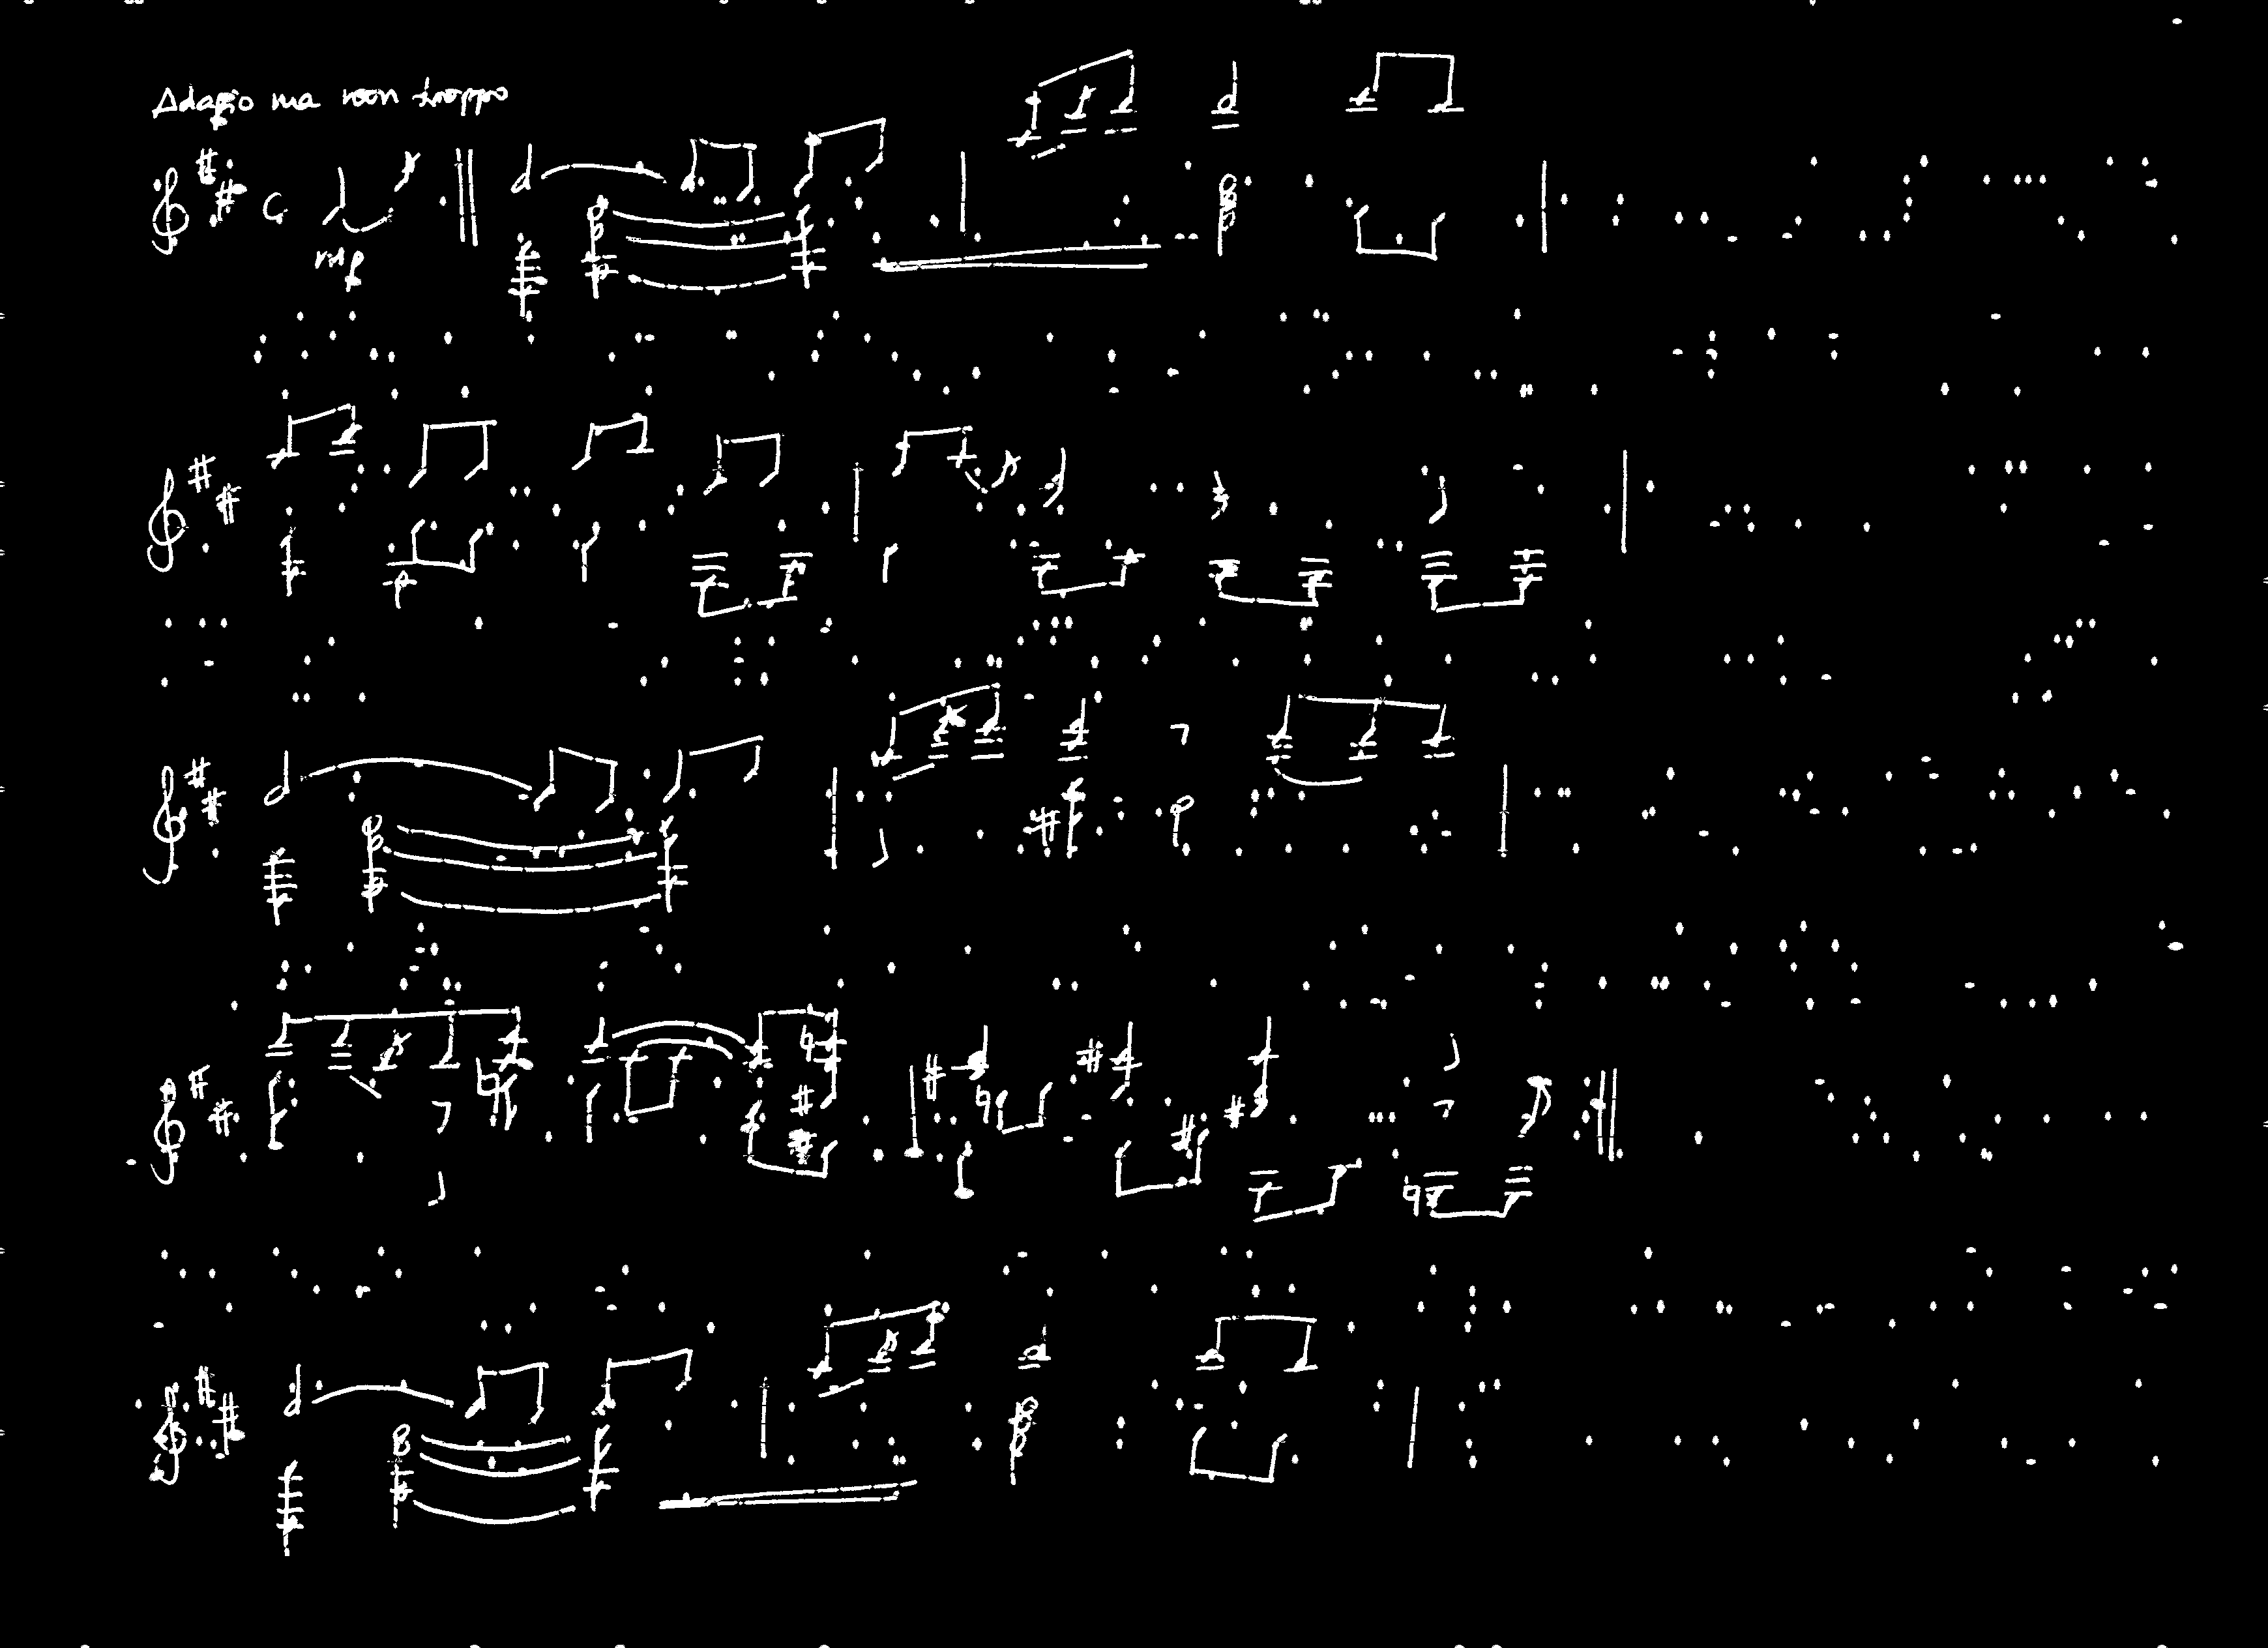 Adagio ma non troppo
mf